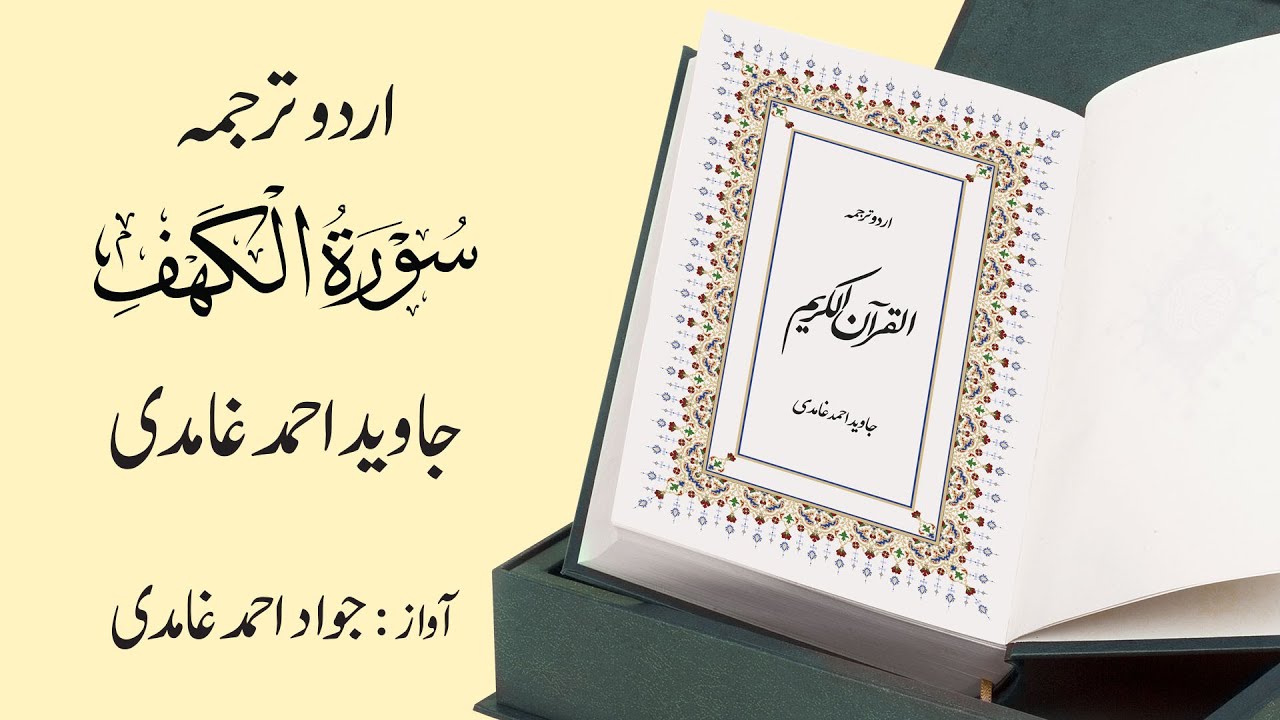 اردو ترجمہ
سُوْرَةُ الْكَهْفِ
جاوید احمد غامدی
آواز : جواد احمد غامدی
اردو ترجمہ
القرآن الکریم
جاوید احمد غامدی